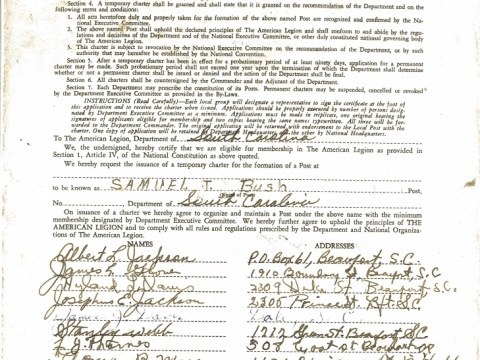 Section 4. A temporary charter shall be granted and shall state that it is granted on the recommendation of the Department and on the
following terms and conditions:
1. All acts heretofore duly and properly taken for the formation of the above named Post are recognized and confirmed by the Na-
tional Executive Committee.
2. The above named Post shall uphold the declared principles of The American Legion and shall conform to and abide by the regu-
lations and decisions of the Department and of the National Executive Committee, or other duly constituted national governing body
of The American Legion.
3. This charter is subject to revocation by the National Executive Committee on the recommendation of the Department, or by such
authority that may hereafter be established by the National Convention.
Section 5. After a temporary charter has been in effect for a probationary period of at least ninety days, application for a permanent
charter may be made. Such probationary period shall not extend one year upon the termination of which the Department shall determine
whether or not a permanent charter shall be issued or denied and the action of the Department shall be final.
Section 6. All charters shall be countersigned by the Commander and the Adjutant of the Department.
Section 7. Each Department may prescribe the constitution of its Posts. Permanent charters may be suspended, cancelled or revoked
by the Department Executive Committee as provided in the By-Laws.
INSTRUCTIONS (Read Carefully)—Each local group will designate a representative to sign the certificate at the foot of
this application and to receive the charter when issued. Applications should be properly executed by number of persons desig-
nated by Department Executive Committee as minimum. Applications must be made in triplicate, one original bearing the
signatures of applicants eligible for membership and two copies bearing the same names typewritten. All three will be for-
warded to the Department Commander. The original application will be returned with endorsement to the Local Post with the
charter. One copy of application will be retained by Department Headquarters, the other by National Headquarters.
To The American Legion, Department of South Carolina
We, the undersigned, hereby certify that we are eligible for membership in The American Legion as provided in
Section 1, Article IV, of the National Constitution as above quoted.
We hereby request the issuance of a temporary charter for the formation of a Post at
to be known as SAMUEL J. Bush Post,
(Name of Post)
No. Department of South Carolina
On issuance of a charter we hereby agree to organize and maintain a Post under the above name with the minimum
membership designated by Department Executive Committee. We hereby further agree to uphold the principles of THE
AMERICAN LEGION and to comply with all rules and regulations prescribed by the Department and National Organiza-
tions of The American Legion.
NAMES ADDRESSES
Albert L. Jackson P.O. Box 61, Beaufort, S.C.
James 1910 Beaufort, S.C
2309 Beaufort, S.C.
Josephus C. Jackson 2305 S.C.
Stanley Webb 1212 Beaufort S.C
508